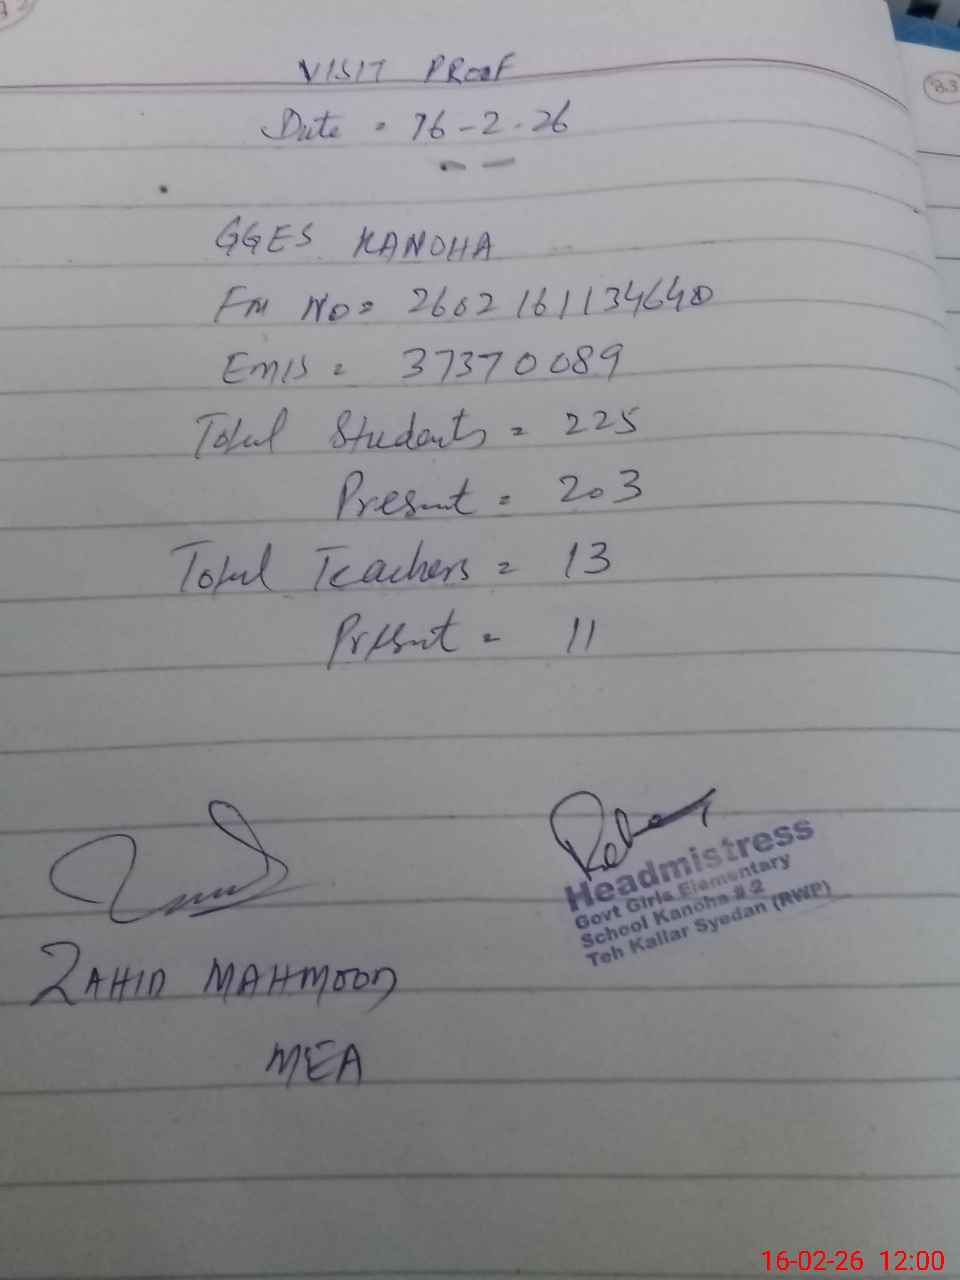 VISIT PROOF
Date = 16-2-26
GGES KANOHA
FM NO= 2602161134640
Emis = 37370089
Total Students = 225
Present = 203
Total Teachers = 13
Present = 11
Headmistress
Govt Girls Elementary
School Kanoha # 2
Teh Kallar Syedan (RWP)
ZAHID MAHMOOD
MEA
16-02-26 12:00